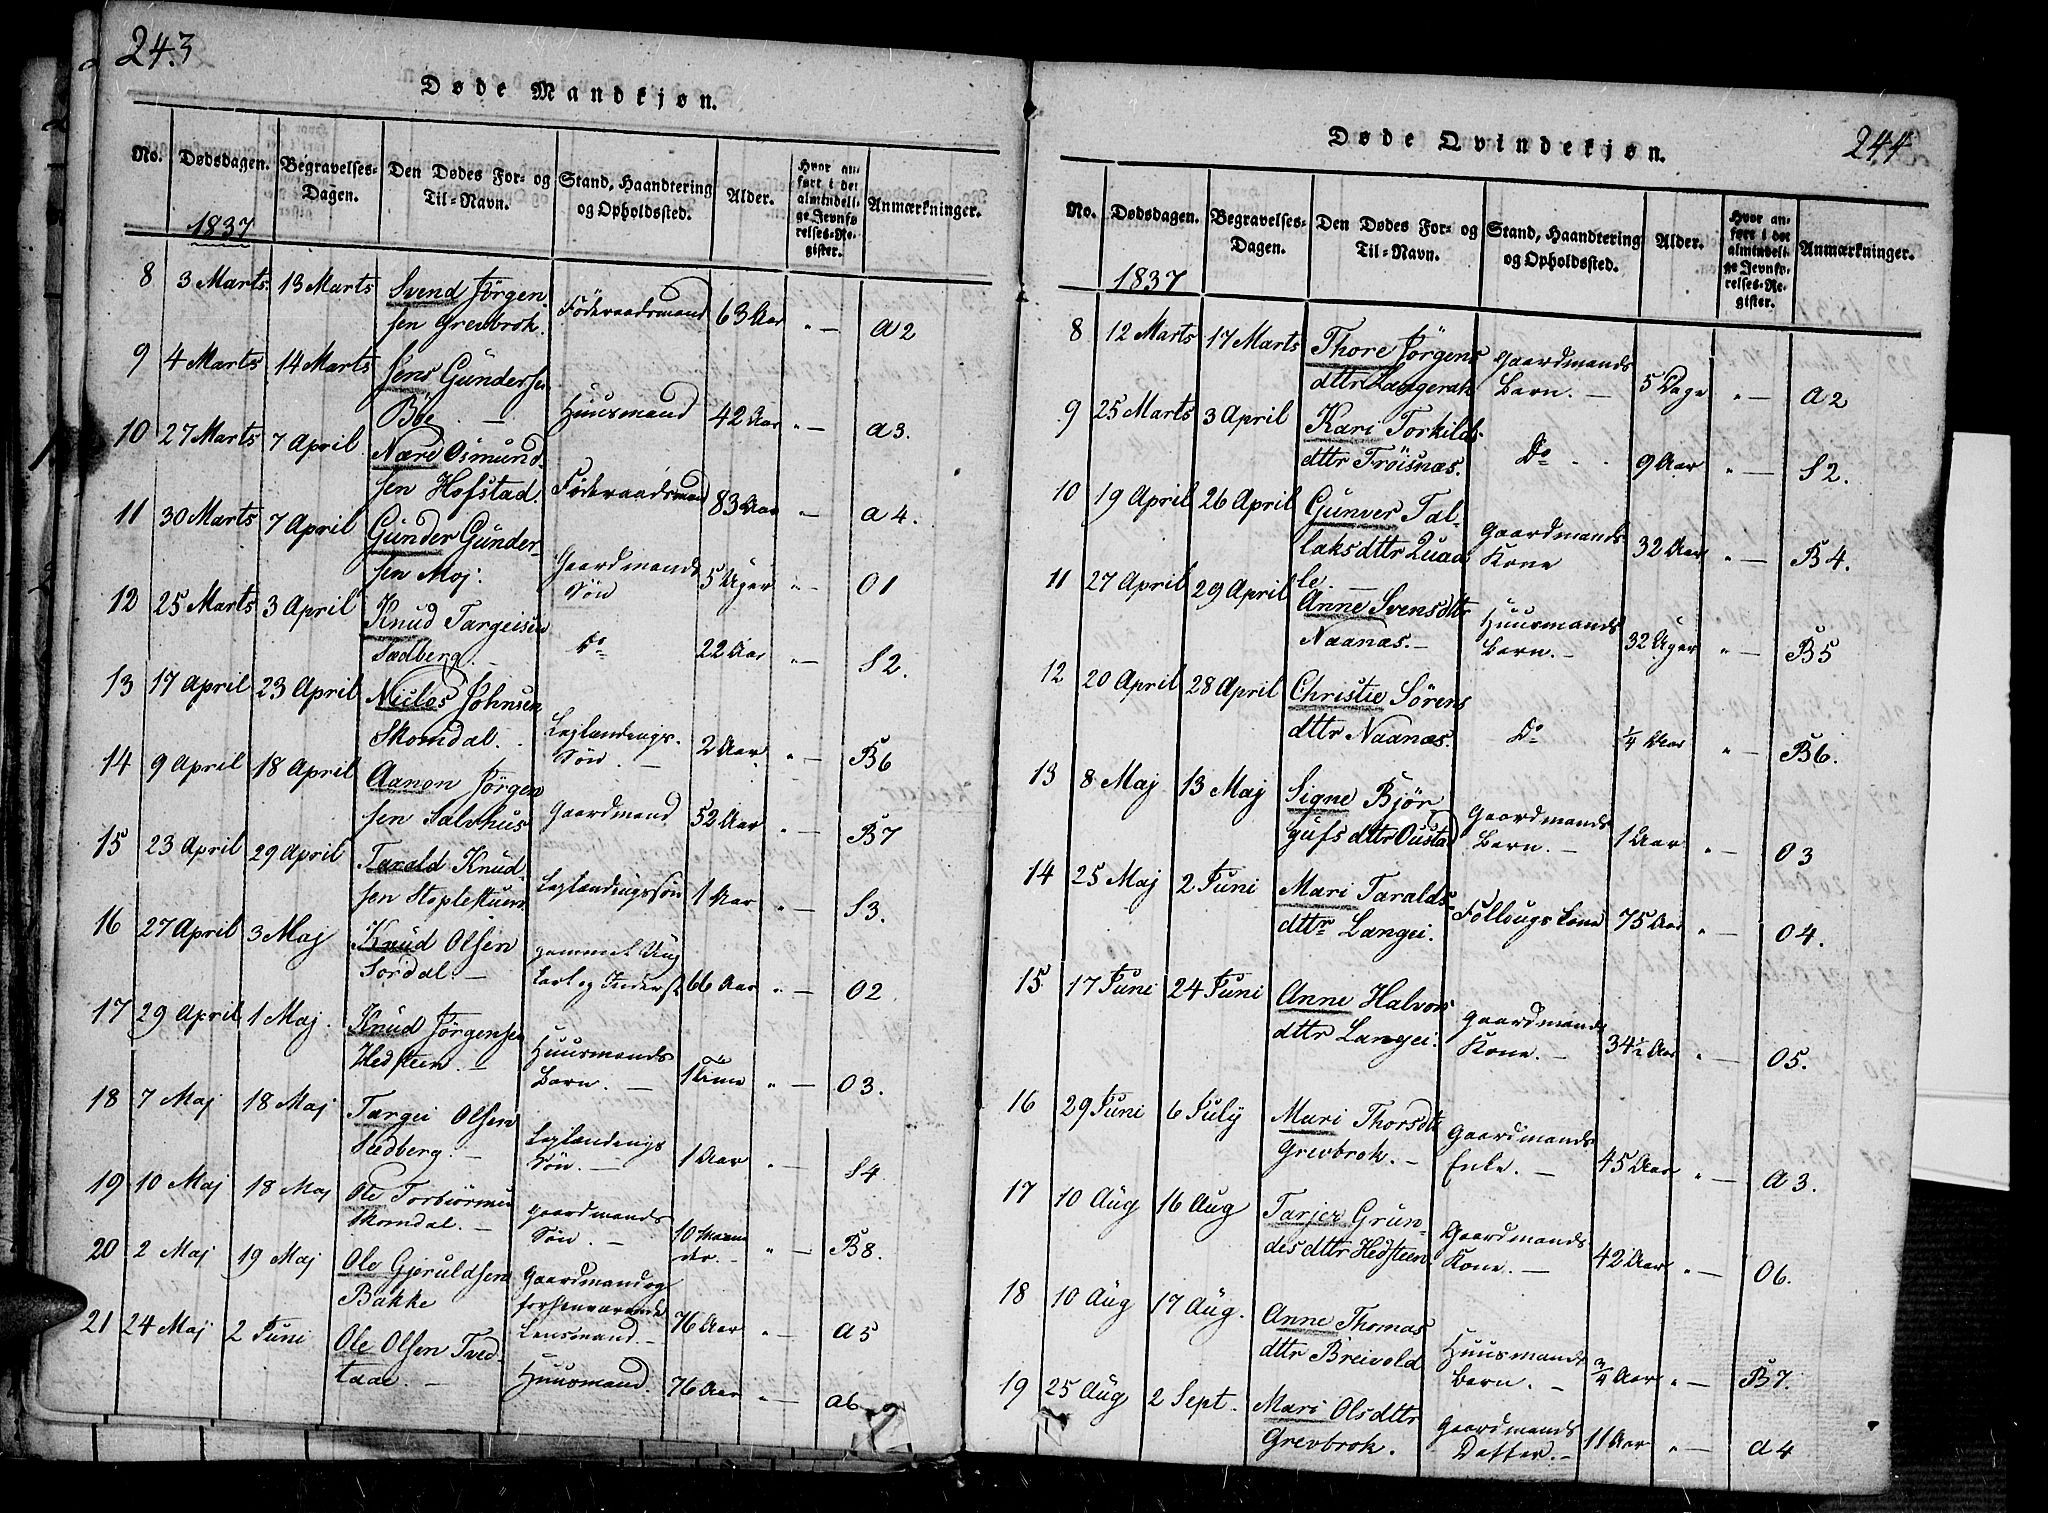 243
Døde Mandkjøn.
No. Dødsdagen. Begravelses-Dagen. Den Dødes For- og Til-Navn. Stand, Haandtering og Opholdssted. Alder. Hvor anført i det almindelige Jevnførelses-Register. Anmærkninger.
1837
8 3 Marts 13 Marts Svend Jørgen-
sen Grevbrok. Föderaadsmand 63 Aar " — a 2
9 4 Marts 14 Marts Jens Gundersen
Böe — Huusmand 42 Aar " — a 3.
10 27 Marts 7 April Næri Osmund-
sen Hofstad. Föderaadsmand 83 Aar " — a 4.
11 30 Marts 7 April Gunder Gunder-
sen Moj. Gaardmands
Sön 5 Uger " — O 1
12 25 Marts 3 April Knud Targeisen
Sædberg. — do 22 Aar " — S 2.
13 17 April 23 April Niclos Johnsen
Skomdal. Lejlændings-
Sön. — 2 Aar " — B 6
14 9 April 18 April Aanon Jörgen
sen Salvhus Gaardmand 52 Aar " — B 7
15 23 April 29 April Tarald Knud-
sen Lejlændingssön 1 Aar " — S 3.
16 27 April 3 Maj Knud Olsen
Sordal. — gammel Ung
karl og Inderst 66 Aar " — O 2
17 29 April 1 Maj. Knud Jörgensen
Hedsteen. — Huusmands
Barn. — 1 Time " — O 3.
18 7 Maj 18 Maj Targei Olsen
Sædberg. — Lejlændings
Sön. — 1 Aar " — S 4
19 10 Maj 18 Maj Ole Torbiörnsen
Skomdal. — Gaardmands
Sön. — 10 Maane
der. " — B 8.
20 2 Maj 19 Maj Ole Gjeruldsen
Bakke Gaardmand og
forhenværende
Lensmand — 76 Aar " — a 5
21 24 Maj 2 Juni Ole Olsen Tved-
taae. — Huusmand. 76 Aar " — a 6
244
Døde Qvindekjøn.
No. Dødsdagen. Begravelses-Dagen. Den Dødes For- og Til-Navn. Stand, Haandtering og Opholdssted. Alder. Hvor anført i det almindelige Jevnførelses-Register. Anmærkninger.
1837
8 12 Marts 17 Marts Thore Jörgens
dttr Langerak Gaardmands
Barn. — 5 Dage " — a 2
9 25 Marts 3 April Kari Torkilds
dttr Tröisnæs. Do 9 Aar " — S 2.
10 19 April 26 April Gunver Tal-
laksdttr Quaa
le. Gaardmands
Kone 32 Aar " — B 4.
11 27 April 29 April Anne Svensdttr
Naanæs. — Huusmands
Barn. — 32 Uger " — B 5
12 20 April 28 April Christie Sörens
dttr Naanæs. do 1/4 Aar " — B 6.
13 8 Maj 13 Maj Signe Bjør
gufs dttr Oustad Gaardmands
Barn. — 1 Aar " — O 3
14 25 Maj 2 Juni Mari Taralds-
dttr Langei. Follougs Kone 75 Aar " — O 4.
15 17 Juni 24 Juni Anne Halvors
dttr Langei. Gaardmands
Kone. — 34½ Aar " — O 5.
16 29 Juni 6 July Mari Thorsdtt
Grevbrok. — Gaardmands
Enke. — 45 Aar " — a 3.
17 10 Aug 16 Aug Tarjer Grun-
desdttr Hedsteen Gaardmands
Kone. — 42 Aar " — O 6.
18 10 Aug 17 Aug. Anne Thomas
dttr Breivold Huusmands
Barn. — 3/4 Aar " — B 7.
19 25 Aug 2 Sept. Mari Olsdttr
Grevbrok. Gaardmands
Datter. — 11 Aar " — a 4